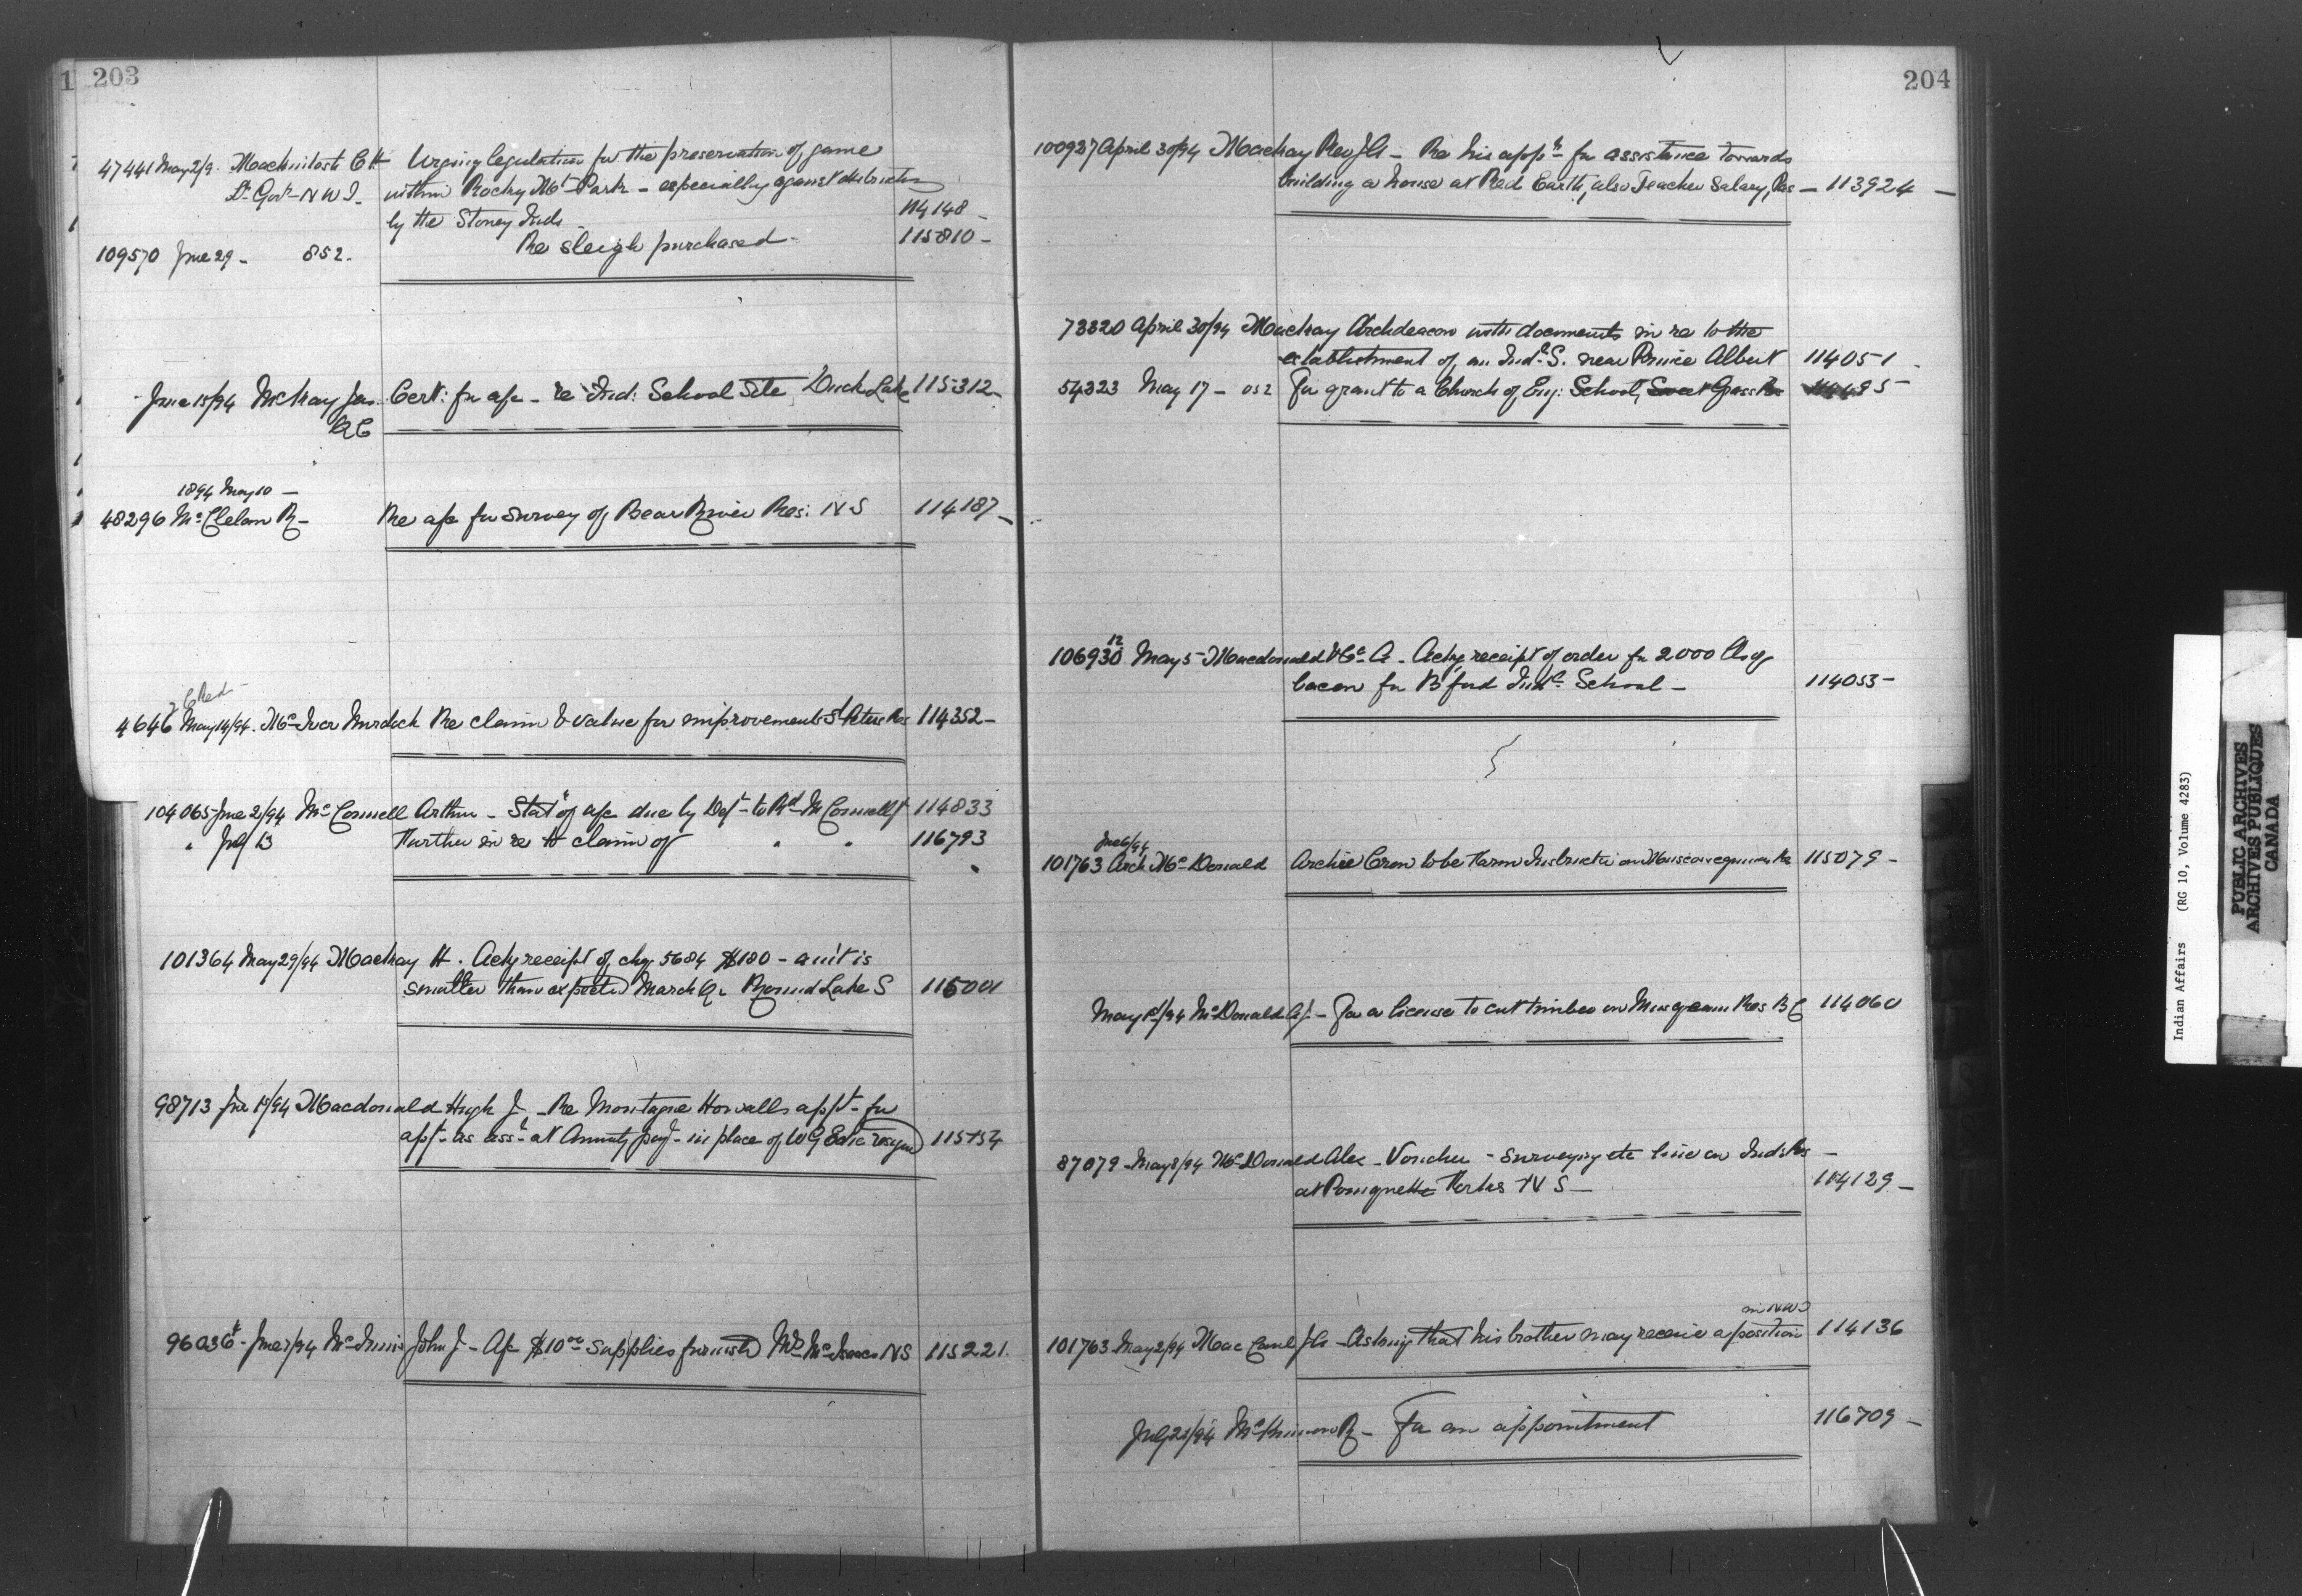 203
47441 May 2/9. MacKintosh C H Urging legislation for the preservation of game
Lt. Gov. N W T. within Rocky Mt Park - especially against destruction
by the Stoney Inds 114148 -
109570 June 29 - 852. Re sleigh purchased - 115810 -
June 15/94 McKay Jas Cert: for a/c - re Ind: School Site, Duck Lake 115312 -
QC
1894 May 10 -
48296 McClelan R - Re a/c for survey of Bear River Res: N S 114187 -
B Red
4646 May 14/94. McIver Murdoch Re claim & value for improvements St Peters Res 114352 -
104065 June 2/94 McConnell Arthur - Stat of a/c due by Dept to Rd McConnell 114833
" July 13 Further in re to claim of " " 116793
101364 May 29/94 Mackay H. Ackg receipt of chq 5684 $180 - am't is
smaller than expected March Qr Round Lake S 115001
98713 June 15/94 Macdonald Hugh J. - Re Montague Howalls appt - for
appt - as asst at Annuity payt - in place of W G Edie resigned 115154
96036 - June 7/94 McInnis John J - A/c $10.00 supplies furnish'd Mrs McIsaac NS 115221.
204
100937 April 30/94 Mackay Rev J A - Re his appn for assistance towards
building a house at Red Earth, also Teacher Salary, Pas - 113924 -
73320 April 30/94 Mackay Archdeacon with documents in re to the
establishment of an Indl. S. near Prince Albert 114051 -
54323 May 17 - 852 For grant to a Church of Eng: School, Sweet Grass Res 114485
12
106930 May 5 - Macdonald & Co A - Ackg receipt of order for 2000 lbs of
bacon for B'ford Indl School - 114053 -
June 6/94
101763 Arch McDonald Archie Crow to be Farm Instructor on 115079 -
May 1st/94 McDonald A J. - For a license to cut timber on Musqueam Res B C 114060
87079 - May 8/94 McDonald Alex - Voucher - surveying etc line on Inds Res -
at Pomquette Forks N S - 114129 -
in NWT
101763 May 2/94 Mac J A - Asking that his brother may receive a position 114136
July 23/94 McKinnon R - For an appointment 116709 -
Indian Affairs (RG 10, Volume 4283)
PUBLIC ARCHIVES
ARCHIVES PUBLIQUES
CANADA